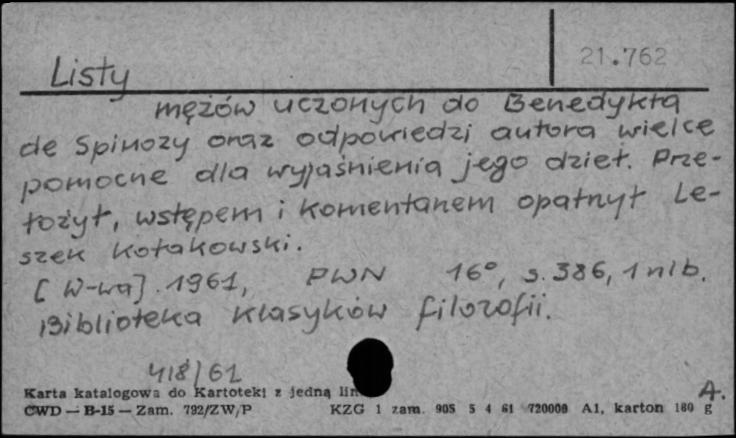 Listy
21.762
mężów uczonych do Benedykta
de Spinozy oraz odpowiedzi autora wielce
pomocne dla wyjaśnienia jego dzieł. Prze-
łożył, wstępem i komentarzem opatrzył Le-
szek Kołakowski.
[W-wa]. 1961, PWN 16°, s. 386, 1 nlb.
Biblioteka Klasyków filozofii.
418/61
A.
Karta katalogowa do Kartoteki z jedną lin
CWD — B-15 — Zam. 792/ZW/P KZG 1 zam. 905 5 4 61 720000 A1, karton 180 g